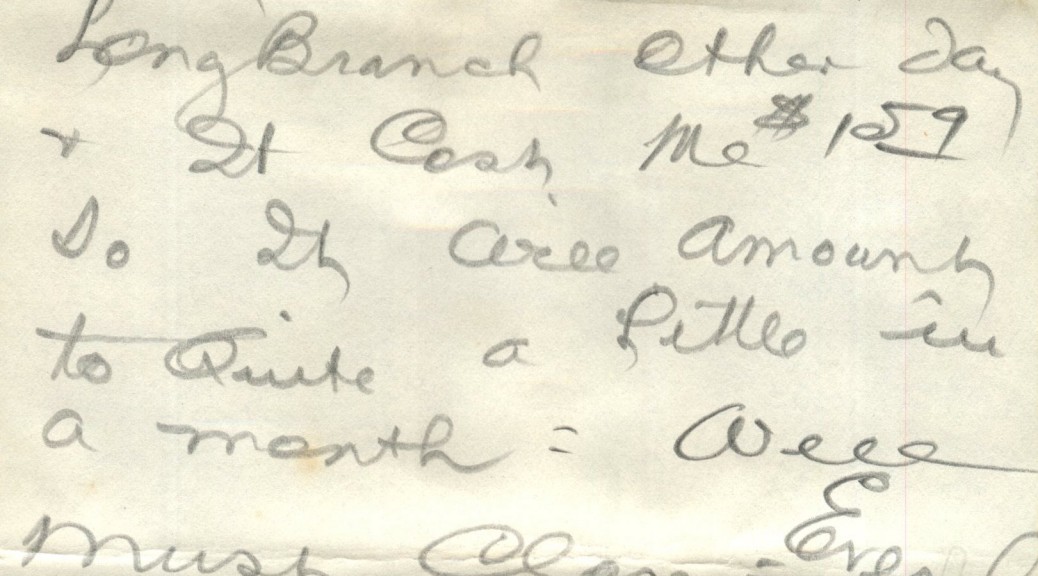 Long Branch other day
+ It Cost me $1.59
So It Will Amount
to Quite a Little in
a month = Well
Must Close =
Ever